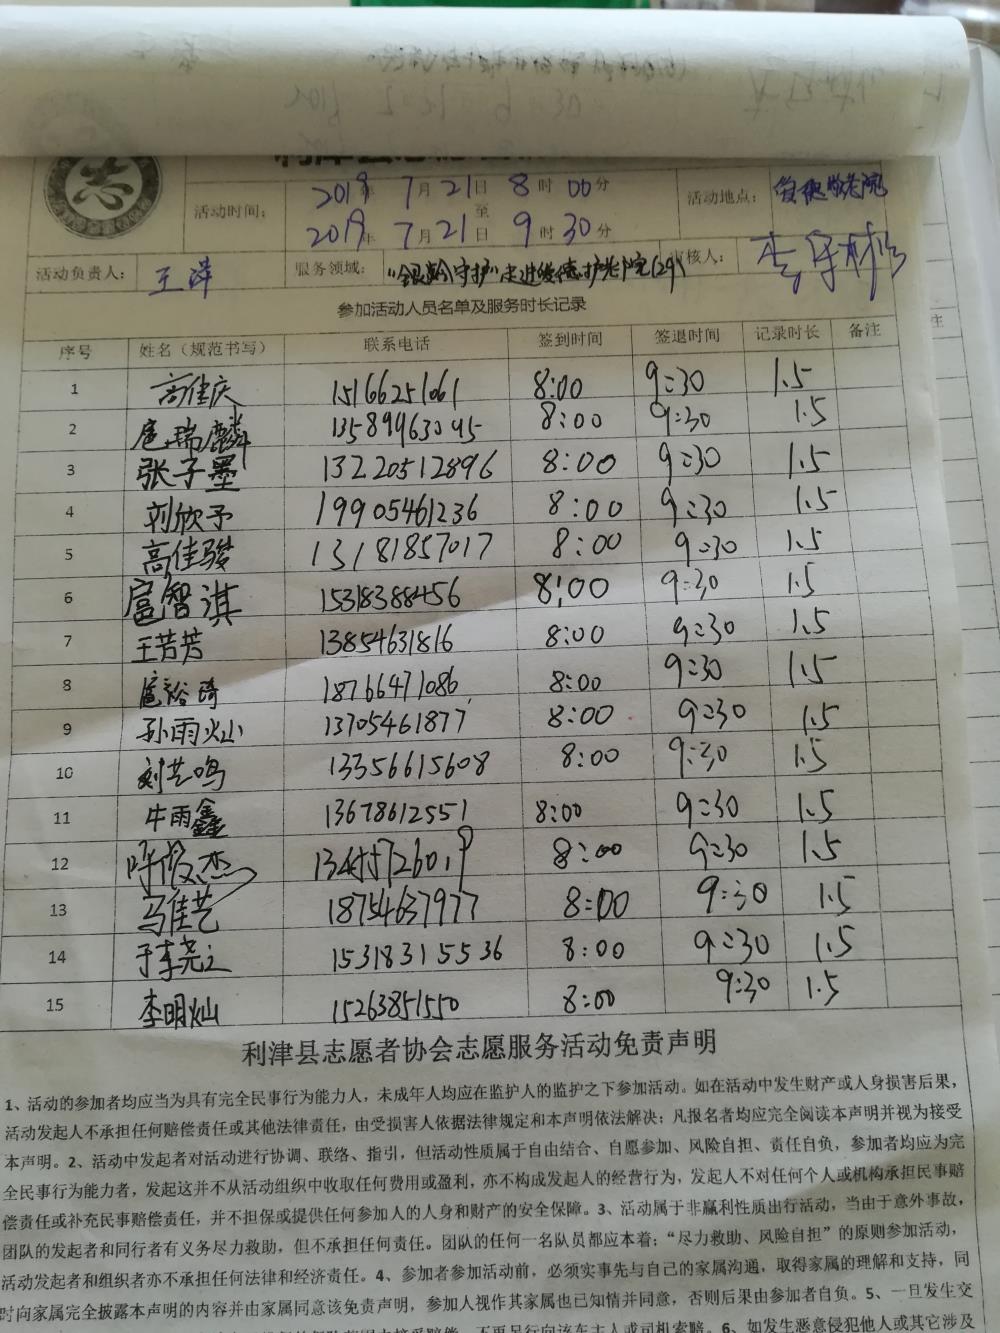 志
2019年 7月21日 8时00分
活动时间： 至 活动地点：
2019年 7月21日 9时30分
活动负责人： 王洋 服务领域： "银龄守护"走进俊德护老院(29) 审核人：
参加活动人员名单及服务时长记录
序号 姓名（规范书写） 联系电话 签到时间 签退时间 记录时长 备注 注
1 高佳庆 15166251061 8:00 9:30 1.5
2 扈瑞麟 13589963045 8:00 9:30 1.5
3 张子墨 13220512896 8:00 9:30 1.5
4 刘欣予 19905461236 8:00 9:30 1.5
5 高佳骏 13181857017 8:00 9:30 1.5
6 扈智淇 15318388456 8:00 9:30 1.5
7 王芳芳 13854631816 8:00 9:30 1.5
8 扈裕琦 18766471086 8:00 9:30 1.5
9 孙雨灿 13705461877 8:00 9:30 1.5
10 刘艺鸣 13356615608 8:00 9:30 1.5
11 牛雨鑫 13678612551 8:00 9:30 1.5
12 8:00 9:30 1.5
13 马佳艺 18754637977 8:00 9:30 1.5
14 于李尧之 15318315536 8:00 9:30 1.5
15 李明灿 15263851550 8:00 9:30 1.5
利津县志愿者协会志愿服务活动免责声明
1、活动的参加者均应当为具有完全民事行为能力人，未成年人均应在监护人的监护之下参加活动。如在活动中发生财产或人身损害后果，
活动发起人不承担任何赔偿责任或其他法律责任，由受损害人依据法律规定和本声明依法解决；凡报名者均应完全阅读本声明并视为接受
本声明。2、活动中发起者对活动进行协调、联络、指引，但活动性质属于自由结合、自愿参加、风险自担、责任自负，参加者均应为完
全民事行为能力者，发起这并不从活动组织中收取任何费用或盈利，亦不构成发起人的经营行为，发起人不对任何个人或机构承担民事赔
偿责任或补充民事赔偿责任，并不担保或提供任何参加人的人身和财产的安全保障。3、活动属于非赢利性质出行活动，当由于意外事故，
团队的发起者和同行者有义务尽力救助，但不承担任何责任。团队的任何一名队员都应本着：“尽力救助、风险自担”的原则参加活动，
活动发起者和组织者亦不承担任何法律和经济责任。4、参加者参加活动前，必须实事先与自己的家属沟通，取得家属的理解和支持，同
时向家属完全披露本声明的内容并由家属同意该免责声明，参加人视作其家属也已知情并同意，否则后果由参加者自负。5、一旦发生交
不再另行向该车主人或司机索赔。6、如发生恶意侵犯他人或其它涉及